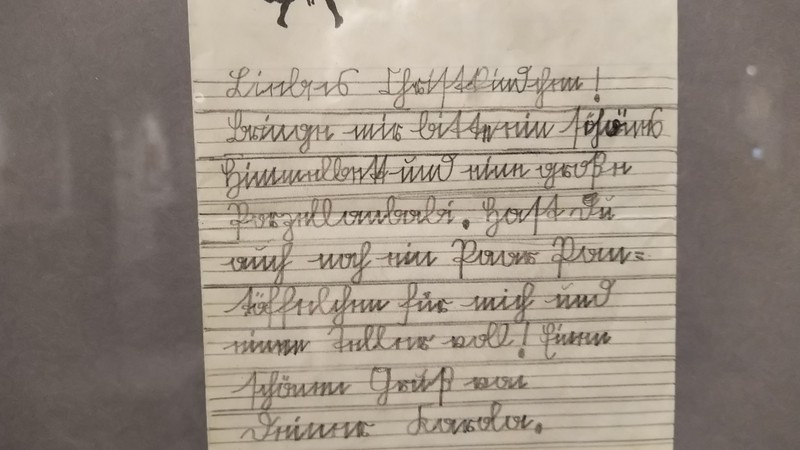 Liebes Christkindchen!
Bringe mir bitte ein schönes
Himmelbett und eine große
Porzellanbabi. Hast Du
auch noch ein Paar Pan=
töffelchen für mich und
einen Teller voll! Einen
schönen Gruß von
Deiner Karola.